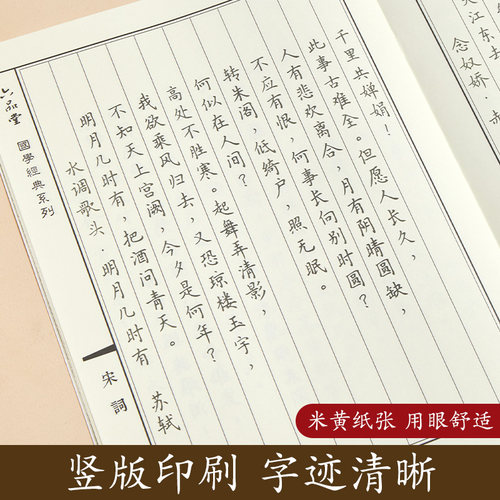 六品堂
國學經典系列
宋詞
水调歌头·明月几时有 苏轼
明月几时有，把酒问青天。
不知天上宫阙，今夕是何年？
我欲乘风归去，又恐琼楼玉宇，
高处不胜寒。起舞弄清影，
何似在人间？
转朱阁，低绮户，照无眠。
不应有恨，何事长向别时圆？
人有悲欢离合，月有阴晴圆缺，
此事古难全。但愿人长久，
千里共婵娟！
念奴娇·赤
江东去
米黄纸张 用眼舒适
竖版印刷 字迹清晰